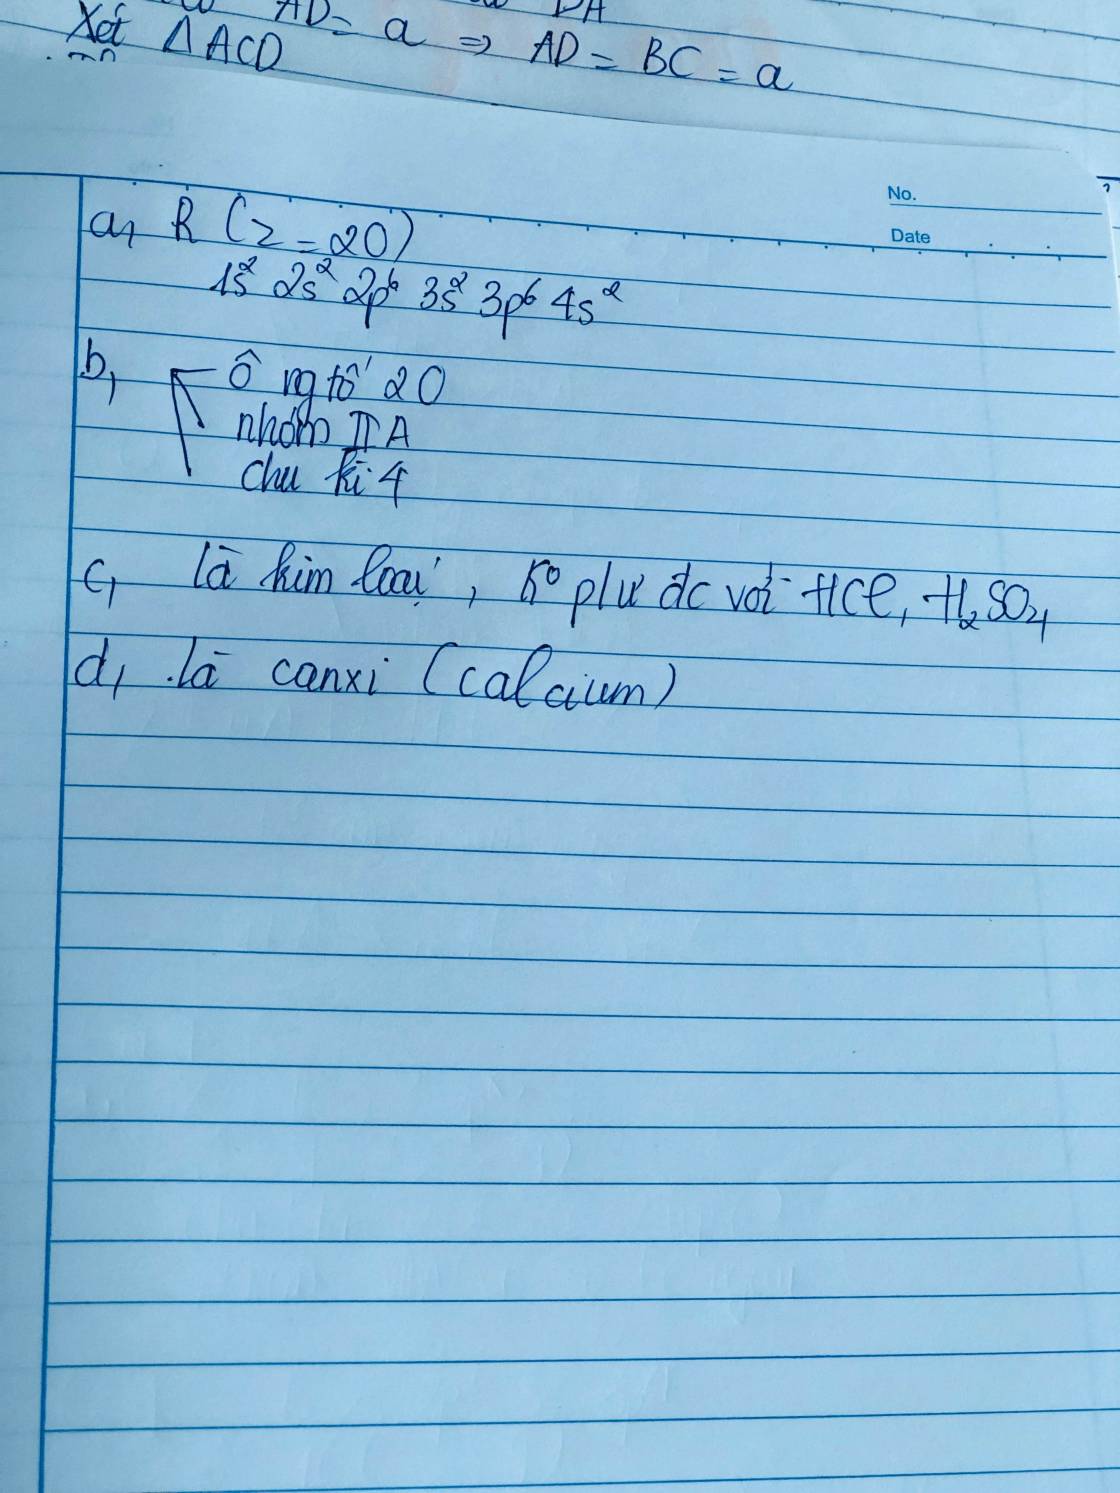 AD = a ⇒ AD = BC = a
Xét ΔACD
No.
Date
a, R (Z = 20)
1s² 2s² 2p⁶ 3s² 3p⁶ 4s²
b, Ô ng tố 20
nhóm IIA
chu kì 4
c, là kim loại, k⁰ pư đc với HCl, H₂SO₄
d, là canxi (calcium)